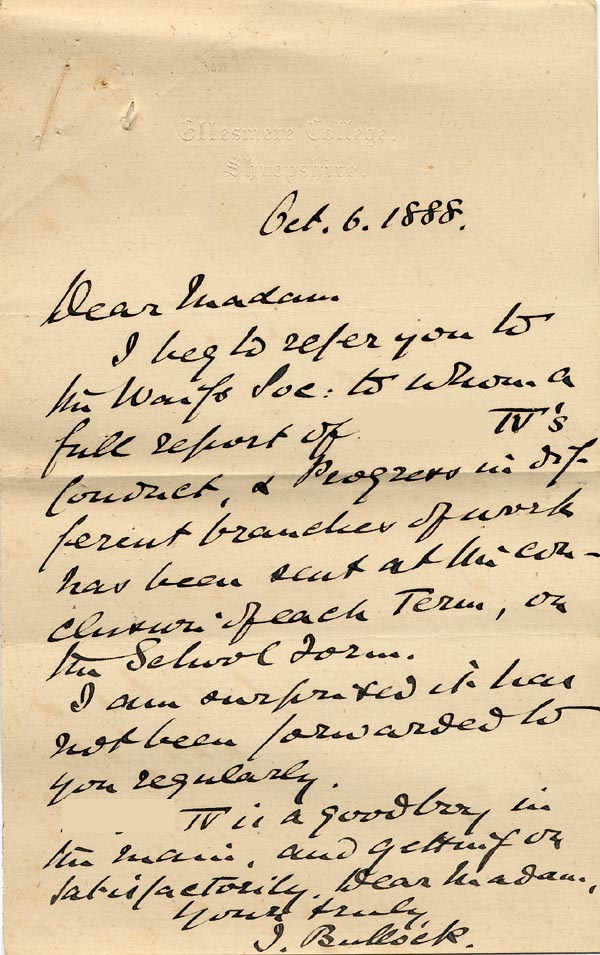 Ellesmere College.
Shropshire.
Oct. 6. 1888.
Dear Madam
I beg to refer you to
the Waifs Soc: to whom a
full report of IV's
Conduct, & Progress in dif-
ferent branches of work
has been sent at the con-
clusion of each Term, on
the School Form.
I am surprised it has
not been forwarded to
you regularly.
IV is a good boy in
the main, and getting on
satisfactorily. Dear Madam,
Yours truly,
J. Bullock.